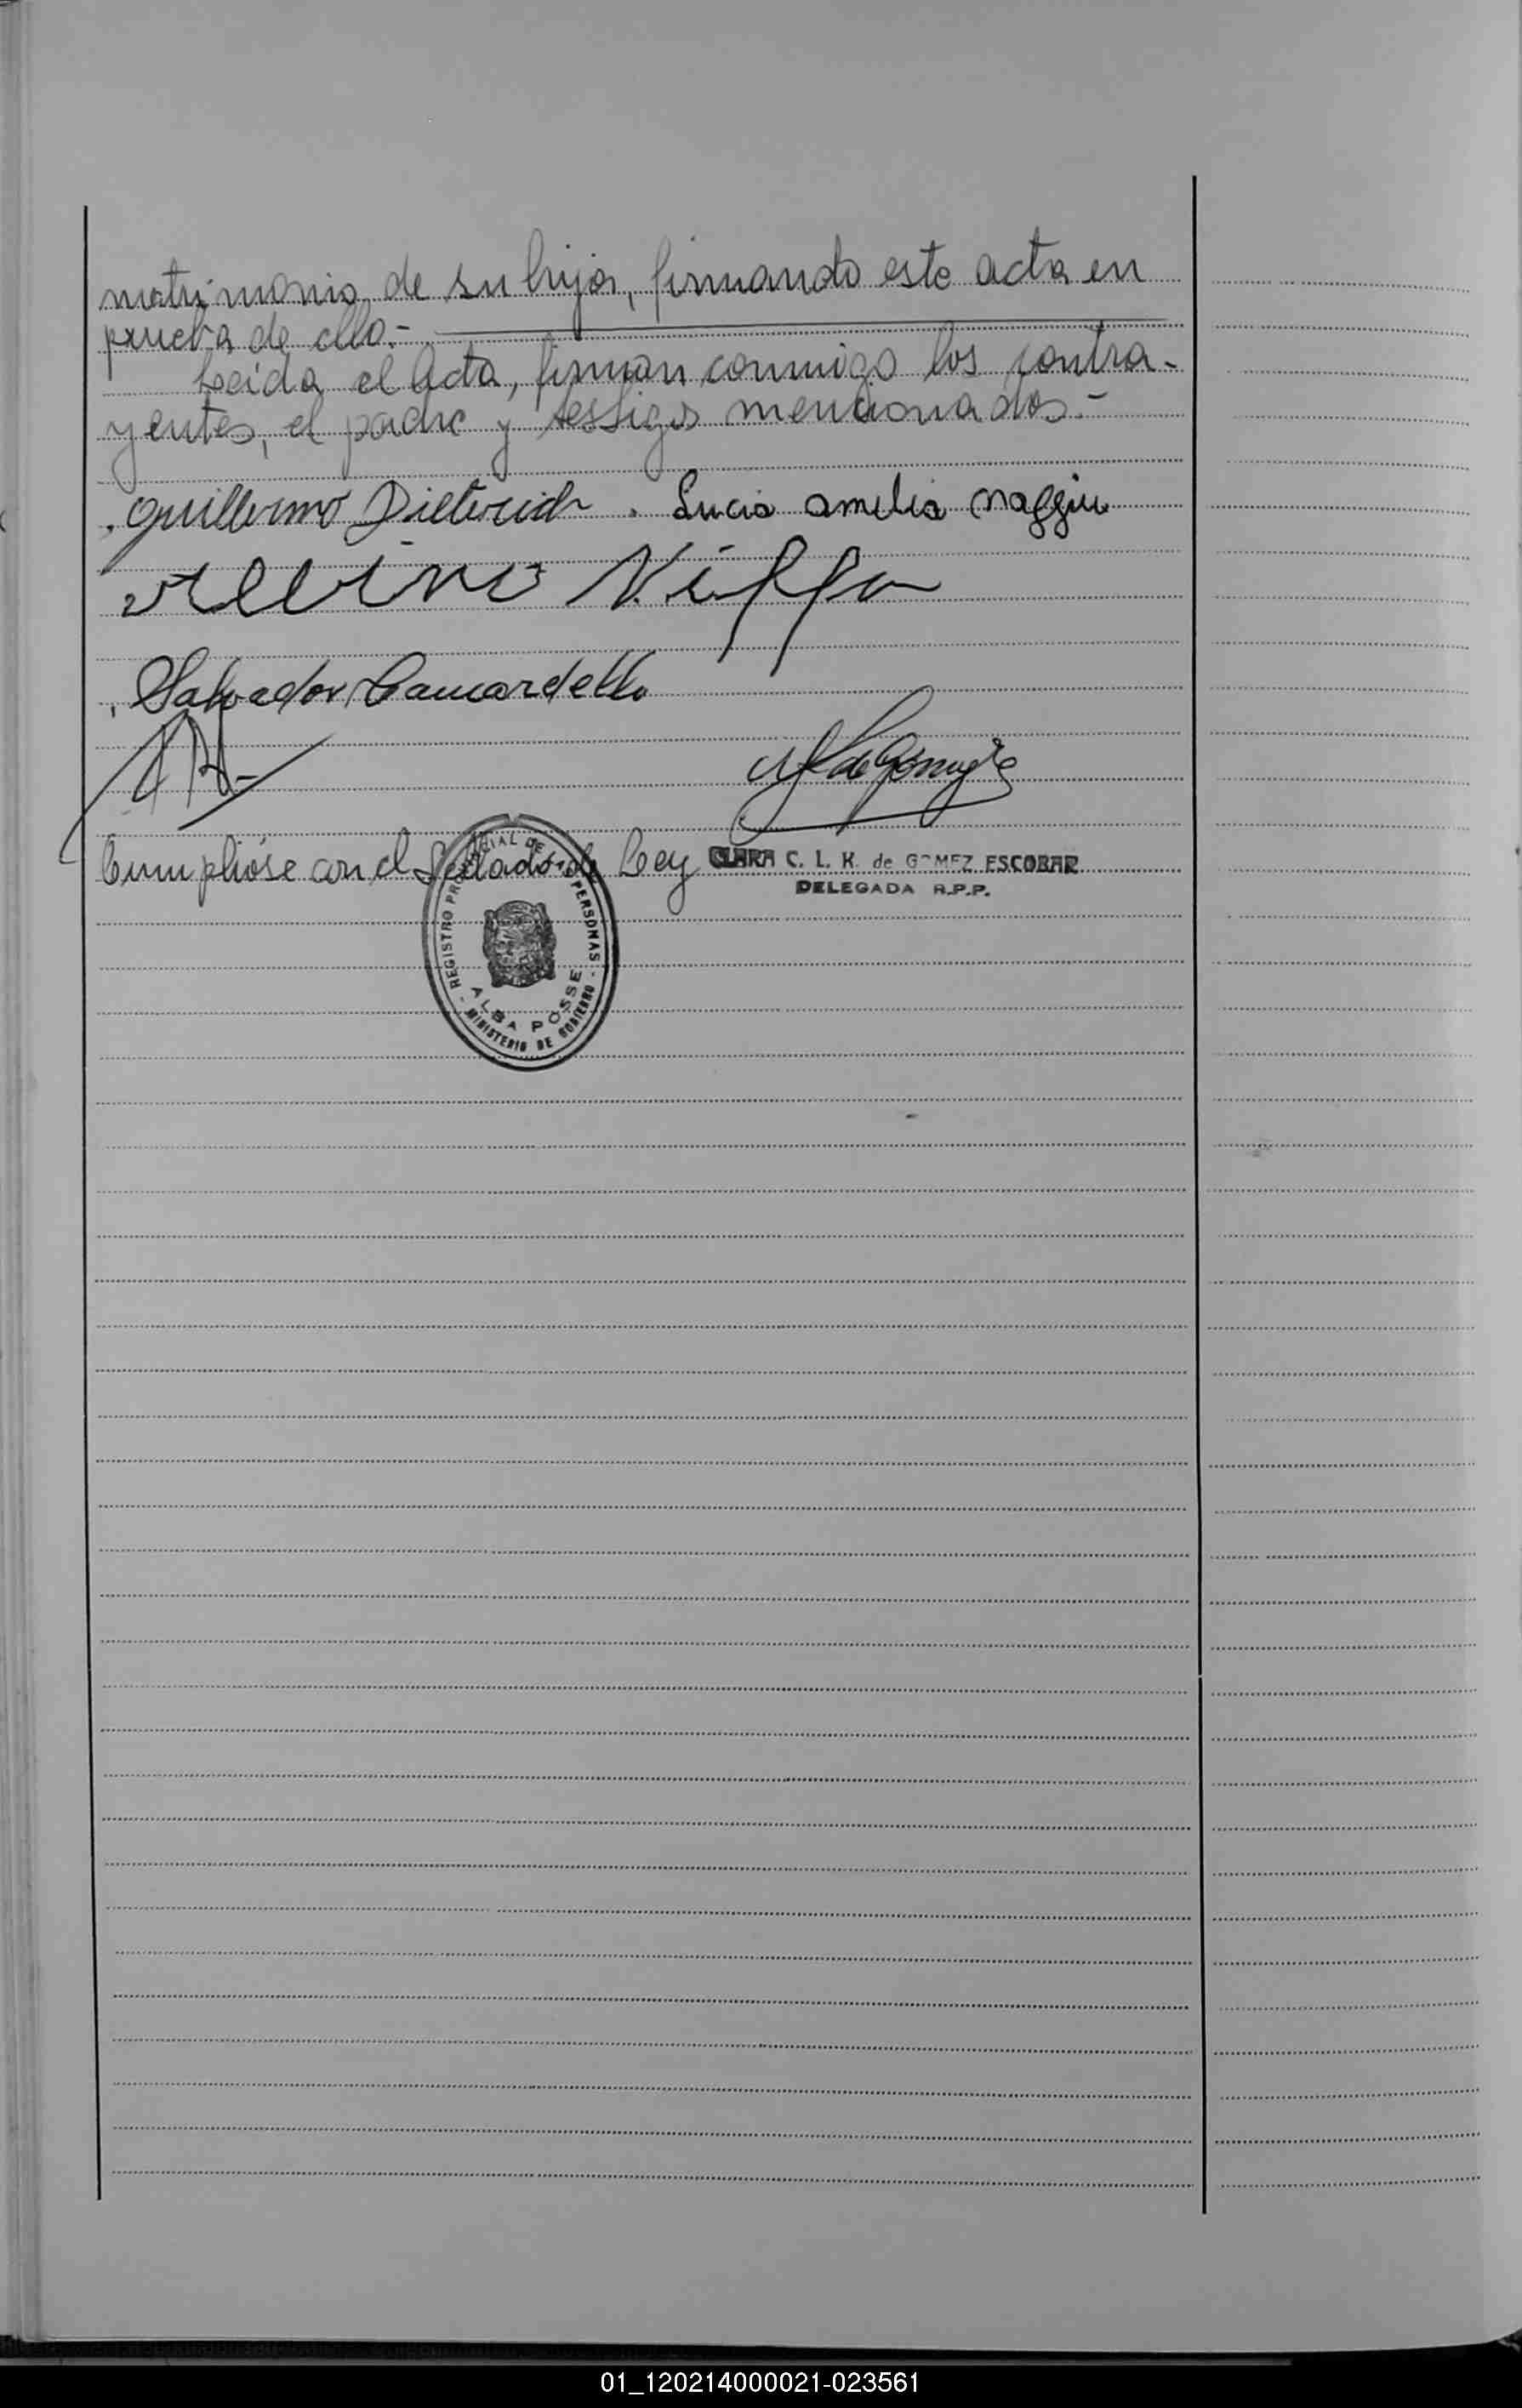 matrimonio de su hija, firmando este acta en
prueba de ello.-
Leida el Acta, firman conmigo los contra-
yentes, el padre y testigos mencionados.-
Guillermo Dieterich . Lucia Amelia
Salvador Camardella
Cumplióse con el Sellado de Ley
CLARA C. L. K. de GOMEZ ESCOBAR
DELEGADA R.P.P.
REGISTRO PROVINCIAL DE PERSONAS
ALBA POSSE
MINISTERIO DE GOBIERNO
01_120214000021-023561